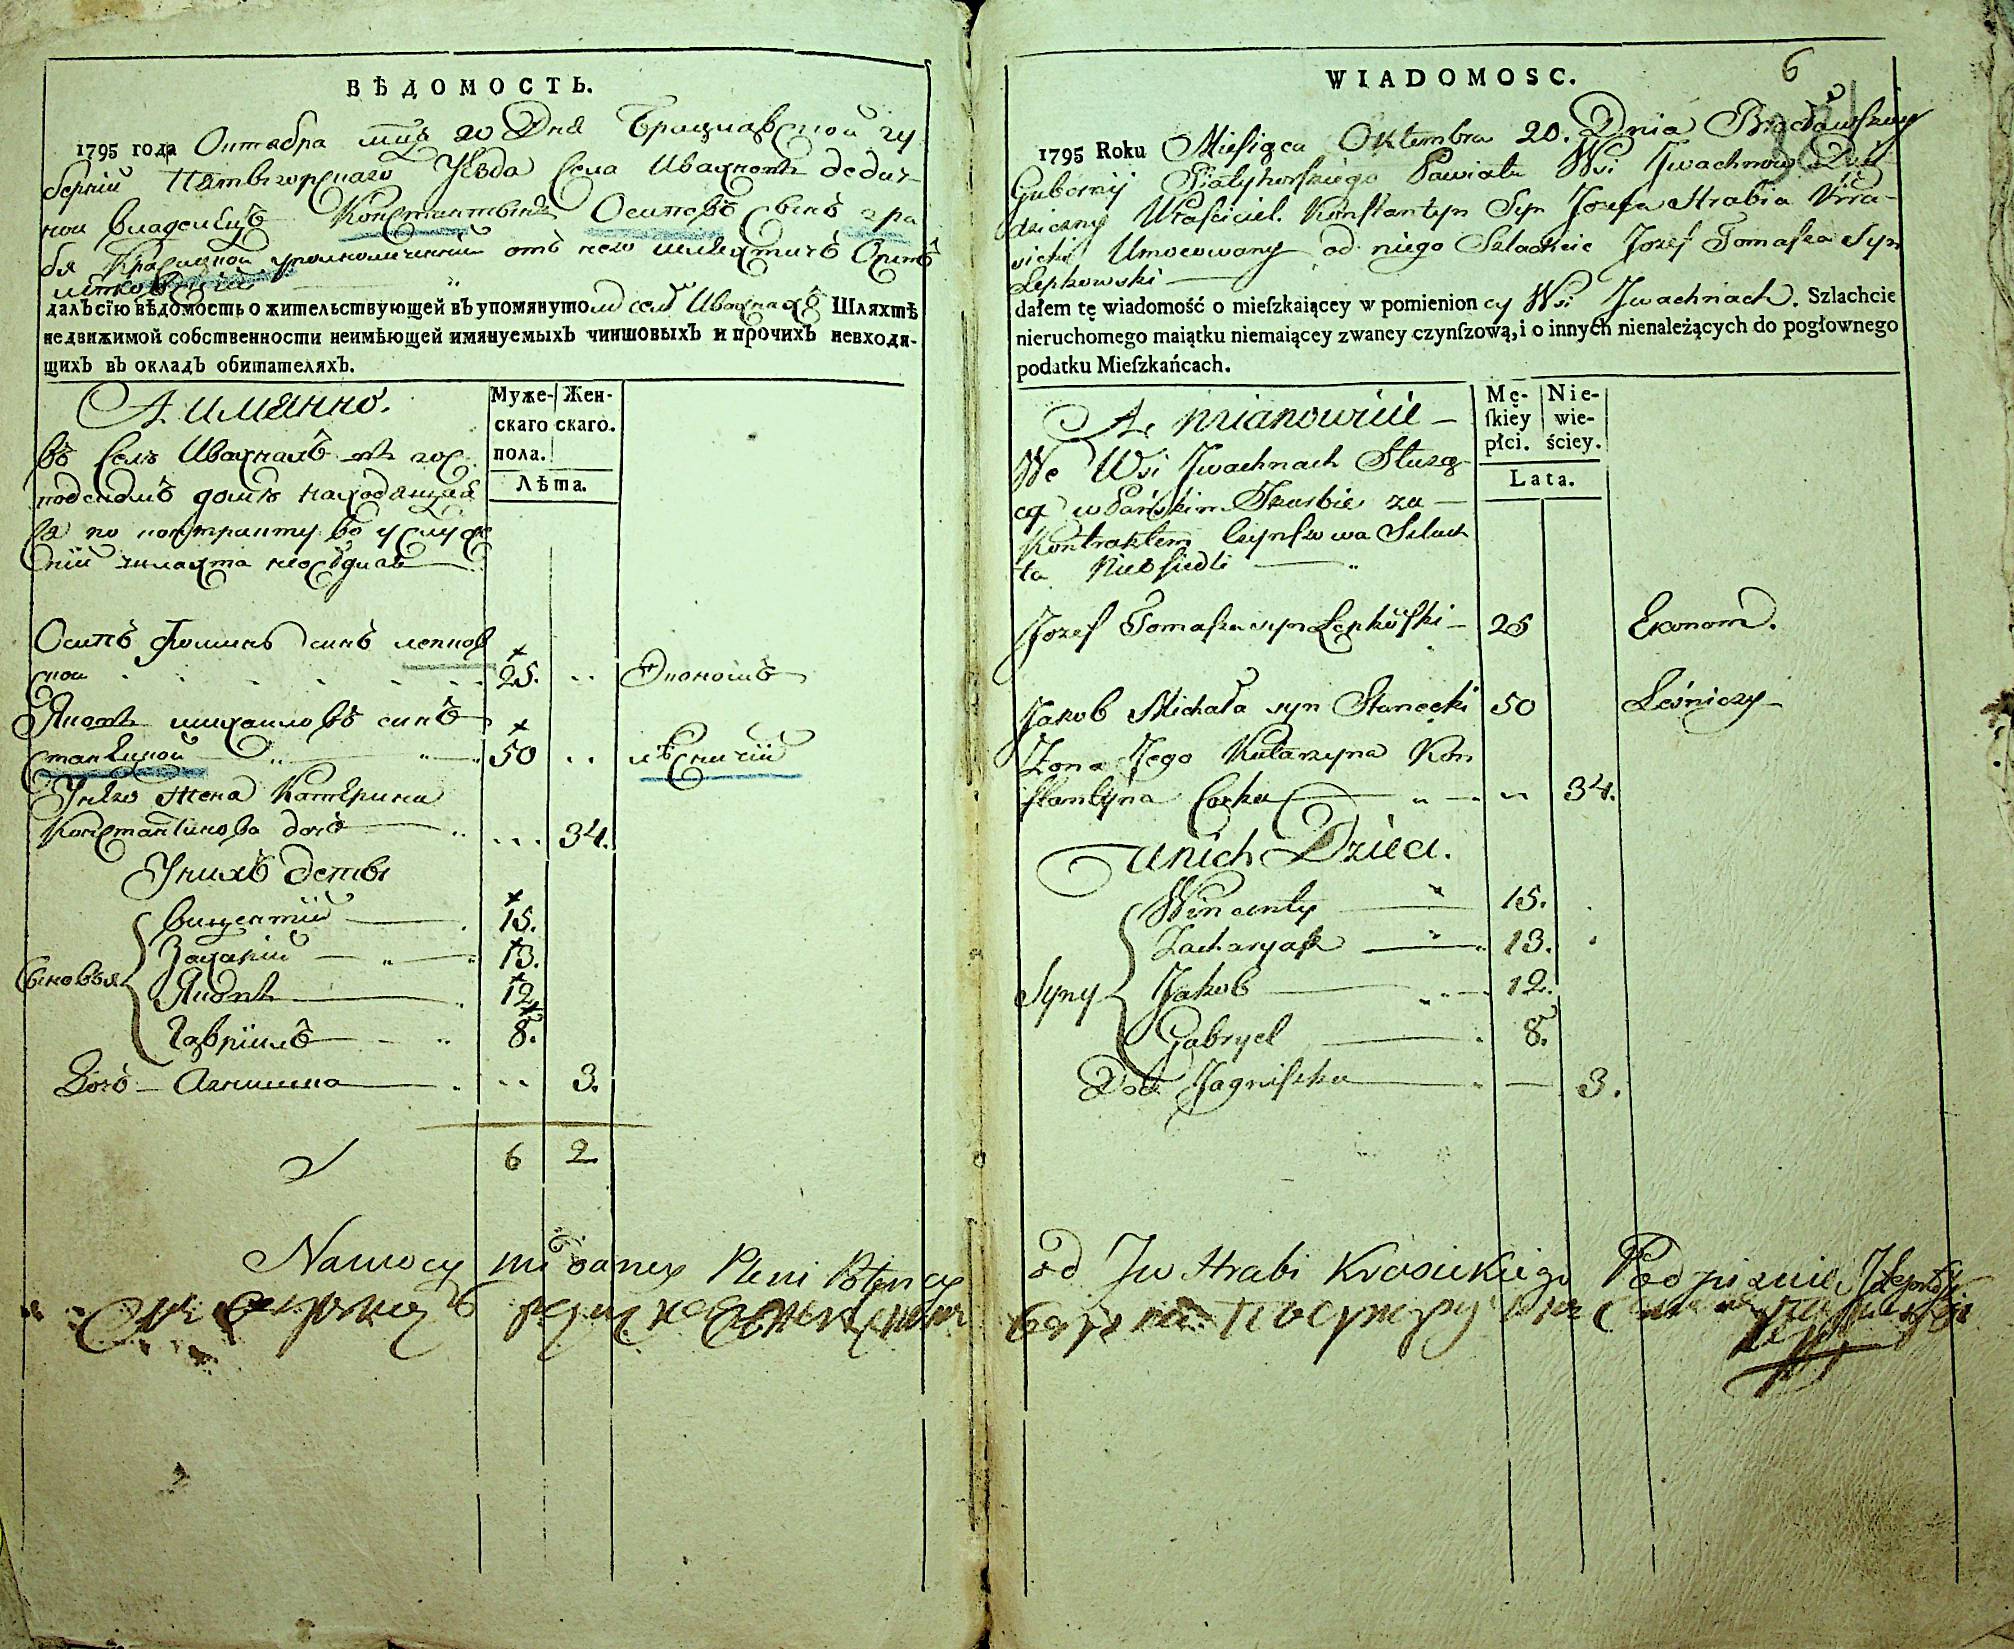 ВѢДОМОСТЬ.
1795 года Октабра мца 20 Дня Брацлавской гу
берніи Пятыгорскаго Уѣзда Села Ивахновъ дедич
ной владѣлецъ Константынъ Осиповъ сынъ гра
бя Красицкой уполномоченній отъ него шляхтичъ Осипъ
лепковскій
далъ сїю вѣдомость о жительствующей въ упомянутомъ селѣ Ивахнахъ Шляхтѣ
недвижимой собственности неимѣющей имянуемыхъ чиншовыхъ и прочихъ невходя-
щихъ въ окладъ обитателяхъ.
А имянно.
Муже- Жен-
скаго скаго.
пола.
Лѣта.
въ Селѣ Ивахнахъ въ гос
подскомъ домѣ находящая
ся по контракту во услуже
ніи шляхта неосѣдлая
Осипъ Фоминъ синъ лепков
ской 25. Экономъ
Якова михаиловъ синъ
станецкой 50 лѣсничій
У него жена Катерина
Константинова дочь 34.
У нихъ дети
Викентій 15.
Захарій 13.
Сыновья Яковъ 12
Гавріилъ 8.
Дочь Агнишка 3.
6 2
Na mocy mi daney Pleni Potencyi
WIADOMOSC.
6
1795 Roku Miesiąca Oktembra 20. Dnia Bracławskiey
Gubernij Piatyhorskiego Powiatu Wsi Jwachnow Dzie
dziczny Właściciel. Konstantyn Syn Jozefa Hrabia Kra-
sicki Umocowany od niego Szlachcic Jozef Tomasza Syn
Lepkowski
dałem tę wiadomość o mieſzkaiącey w pomienioney Wsi Jwachnach. Szlachcie
nieruchomego maiątku niemaiącey zwaney czynſzową, i o innych nienależących do pogłownego
podatku Mieſzkańcach.
A, mianowicie
Mę- Nie-
ſkiey wie-
płci. ściey.
Lata.
We Wsi Jwachnach Służą
cą w Pańskim Skarbie za
Kontraktem Czynszowa Szlach
ta Nieosiedli
Jozef Tomasza syn Lepkoſki 25 Ekonom.
Jakob Michała syn Stanecki 50 Leśniczy
Żona Jego Katarzyna Kon
stantyna Corka 34.
u nich Dzieci.
Wincenty 15.
Zacharyasz 13.
Syny Jakob 12.
Gabryel 8.
Cor. Jagniszka 3.
od Jw Hrabi Krasickiego Podpisuie JLepkoſki